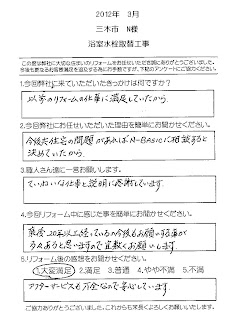 2012年 3月
三木市 N様
浴室水栓取替工事
この度は弊社に大切な住まいのリフォームをお任せいただき誠にありがとうございました。
1.今回弊社に来ていただいたきっかけは何ですか?
以前のリフォームの仕事に満足していたから。
2.今回弊社にお任せいただいた理由を簡単にお聞かせください。
今後共住宅の問題があればN-BASICに相談すると
決めていたから。
3.職人さん達に一言お願いします。
ていねいな仕事と説明に感謝しています。
4.今回リフォーム中に感じた事を簡単にお聞かせください。
築後20年以上経っているので今後もお願いする事が
多々あると思いますので宜敷くお願いします。
5.リフォーム後の感想をお聞かせください。
1.大変満足 2.満足 3.普通 4.やや不満 5.不満
アフターサービスも万全なので安心しています。
ご協力ありがとうございました。これからも末長くよろしくお願いいたします。